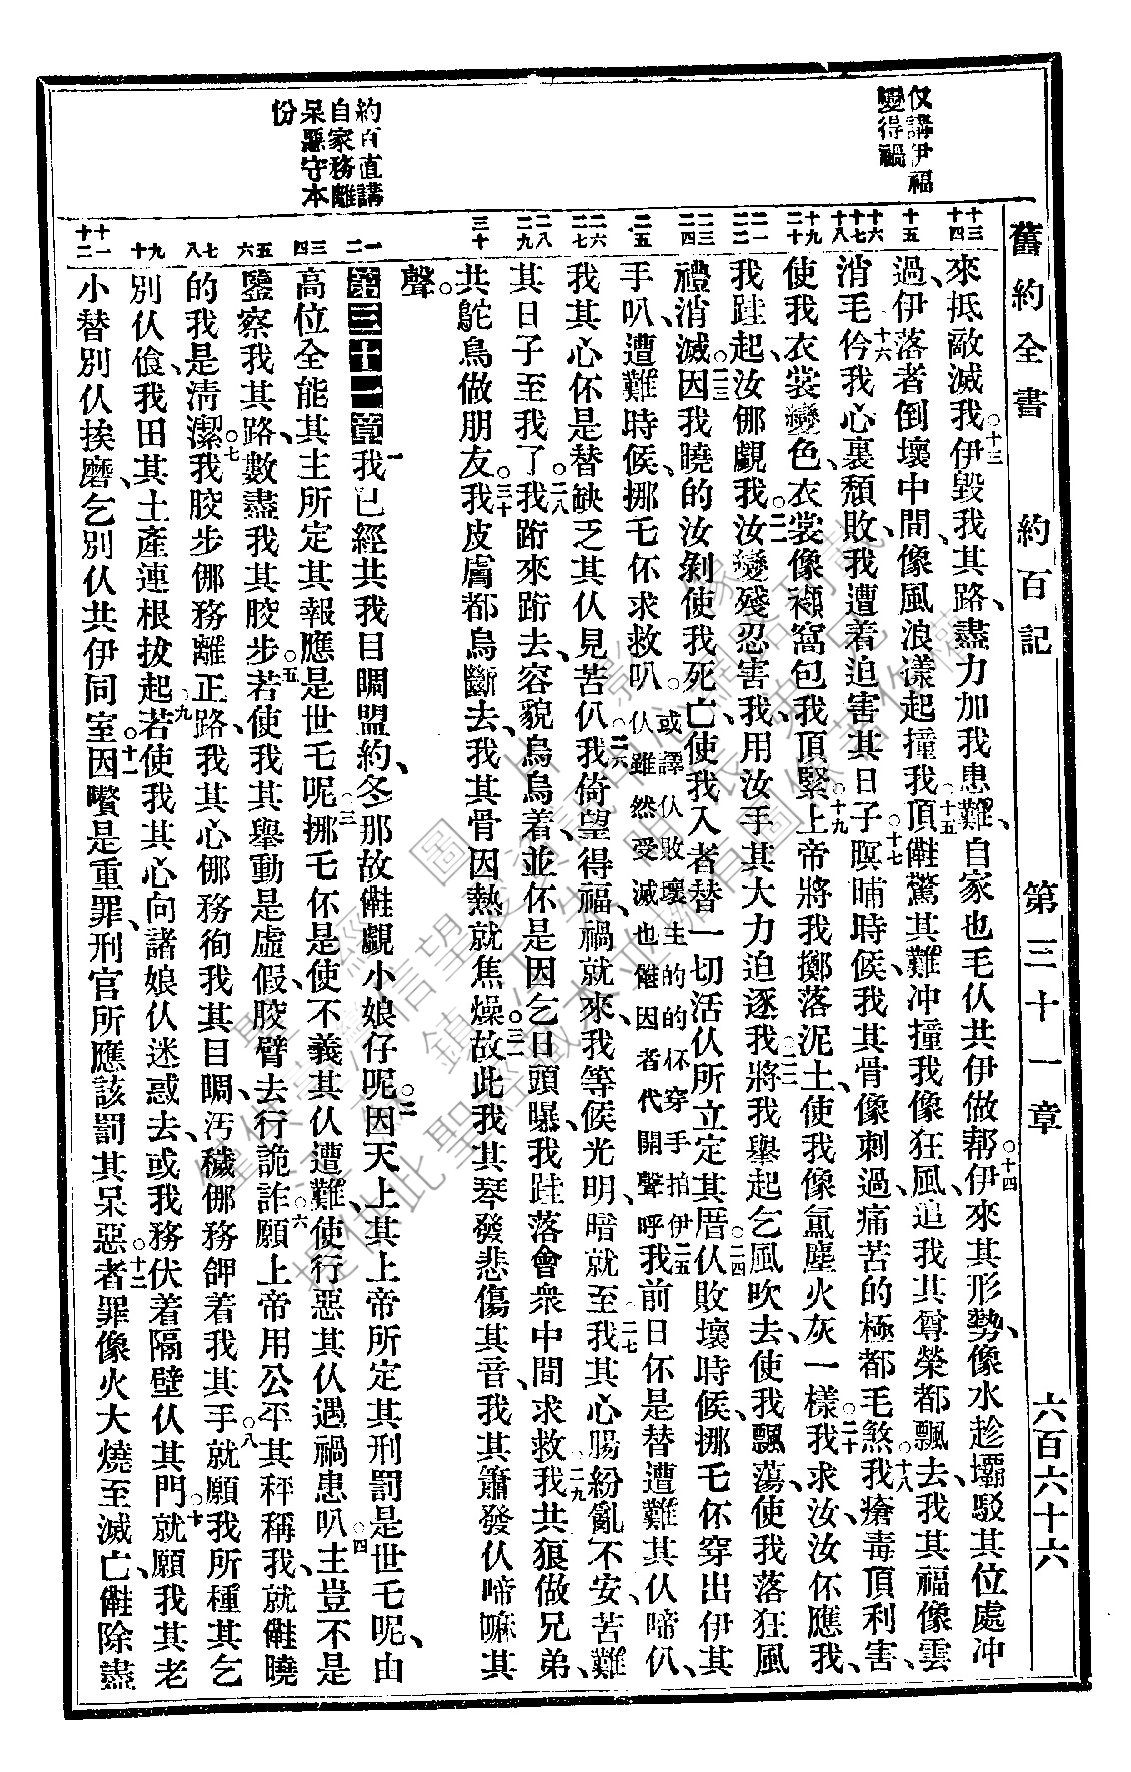 舊約全書 約百記 第三十一章 六百六十六
仅講伊福
變得禍
約百直講
自家務離
呆惡守本
份
十三 十四 十五 十六 十七 十八 十九 二十 二一 二二 二三 二四 二五 二六 二七 二八 二九 三十
一 二 三 四 五 六 七 八 九 十 十一 十二
來抵敵滅我○十三伊毀我其路、盡力加我患難、自家也毛仈共伊做帮○十四伊來其形勢、像水趁壩駁其位處冲
過、伊落者倒壞中間、像風浪漾起撞我○十五頂㒕驚其難冲撞我像狂風、追我其尊榮都飄去、我其福像雲
消毛○十六仱我心裏頹敗、我遭着迫害其日子○十七暝晡時候、我其骨像刺過、痛苦的極都毛煞○十八我瘡毒頂利害、
使我衣裳變色、衣裳像襴窩包我頂緊○十九上帝將我擲落泥土、使我像氣塵火灰一樣○二十我求汝、汝伓應我、
我跬起、汝㑚覷我○二一汝變殘忍害我、用汝手其大力迫逐我○二二將我舉起乞風吹去、使我飄蕩、使我落狂風
禮消滅○二三因我曉的汝剝使我死亡、使我入者替一切活仈所立定其厝○二四仈敗壞時候、挪毛伓穿出伊其
手叭、遭難時候、挪毛伓求救叭○或譯仈敗壞主的的伓穿手拍伊仈雖然受滅也㒕因者代開聲呼二五我前日伓是替遭難其仈啼仈、
我其心伓是替缺乏其仈見苦仈○二六我倚望得福、禍就來、我等候光明、暗就至○二七我其心腸紛亂不安、苦難
其日子至我了○二八我跰來跰去、容貌烏烏着、並伓是因乞日頭曝、我跬落會衆中間、求救○二九我共狼做兄弟、
共鴕鳥做朋友○三十我皮膚都烏斷去、我其骨因熱就焦燥○三一故此我其琴發悲傷其音、我其簫發仈啼嘛其
聲○
第三十一章 一我已經共我目睭盟約、冬那故㒕覷小娘仔呢○二因天上其上帝所定其刑罰是世乇呢、由
高位全能其主所定其報應是世乇呢○三挪毛伓是使不義其仈遭難、使行惡其仈遇禍患叭○四主豈不是
鑒察我其路、數盡我其骹步○五若使我其舉動是虛假、骹臂去行詭詐○六願上帝用公平其秤稱我、就㒕曉
的我是清潔○七我骹步㑚務離正路、我其心㑚務徇我其目睭、汚穢㑚務䶎着我其手○八就願我所種其乞
別仈飡、我田其土產連根拔起○九若使我其心向諸娘仈迷惑去、或我務伏着隔壁仈其門○十就願我其老
小替別仈挨磨、乞別仈共伊同室○十一因嚽是重罪、刑官所應該罰其呆惡○十二者罪像火大燒至滅亡、㒕除盡